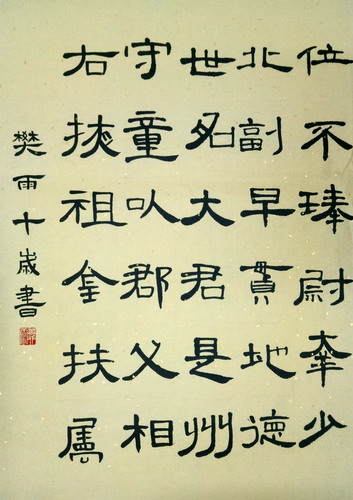 位不尉少
北副早貫地德
世名大君是州
守童以郡父相
右祖扶
樊雨十歲書